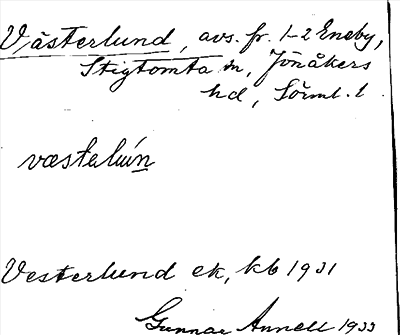 Västerlund, avs. fr. 1-2 Eneby,
Stigtomta sn, Jönåkers
hd, Sörml. l.
væstelún
Vesterlund ek, kb 1931
Gunnar Annell 1933